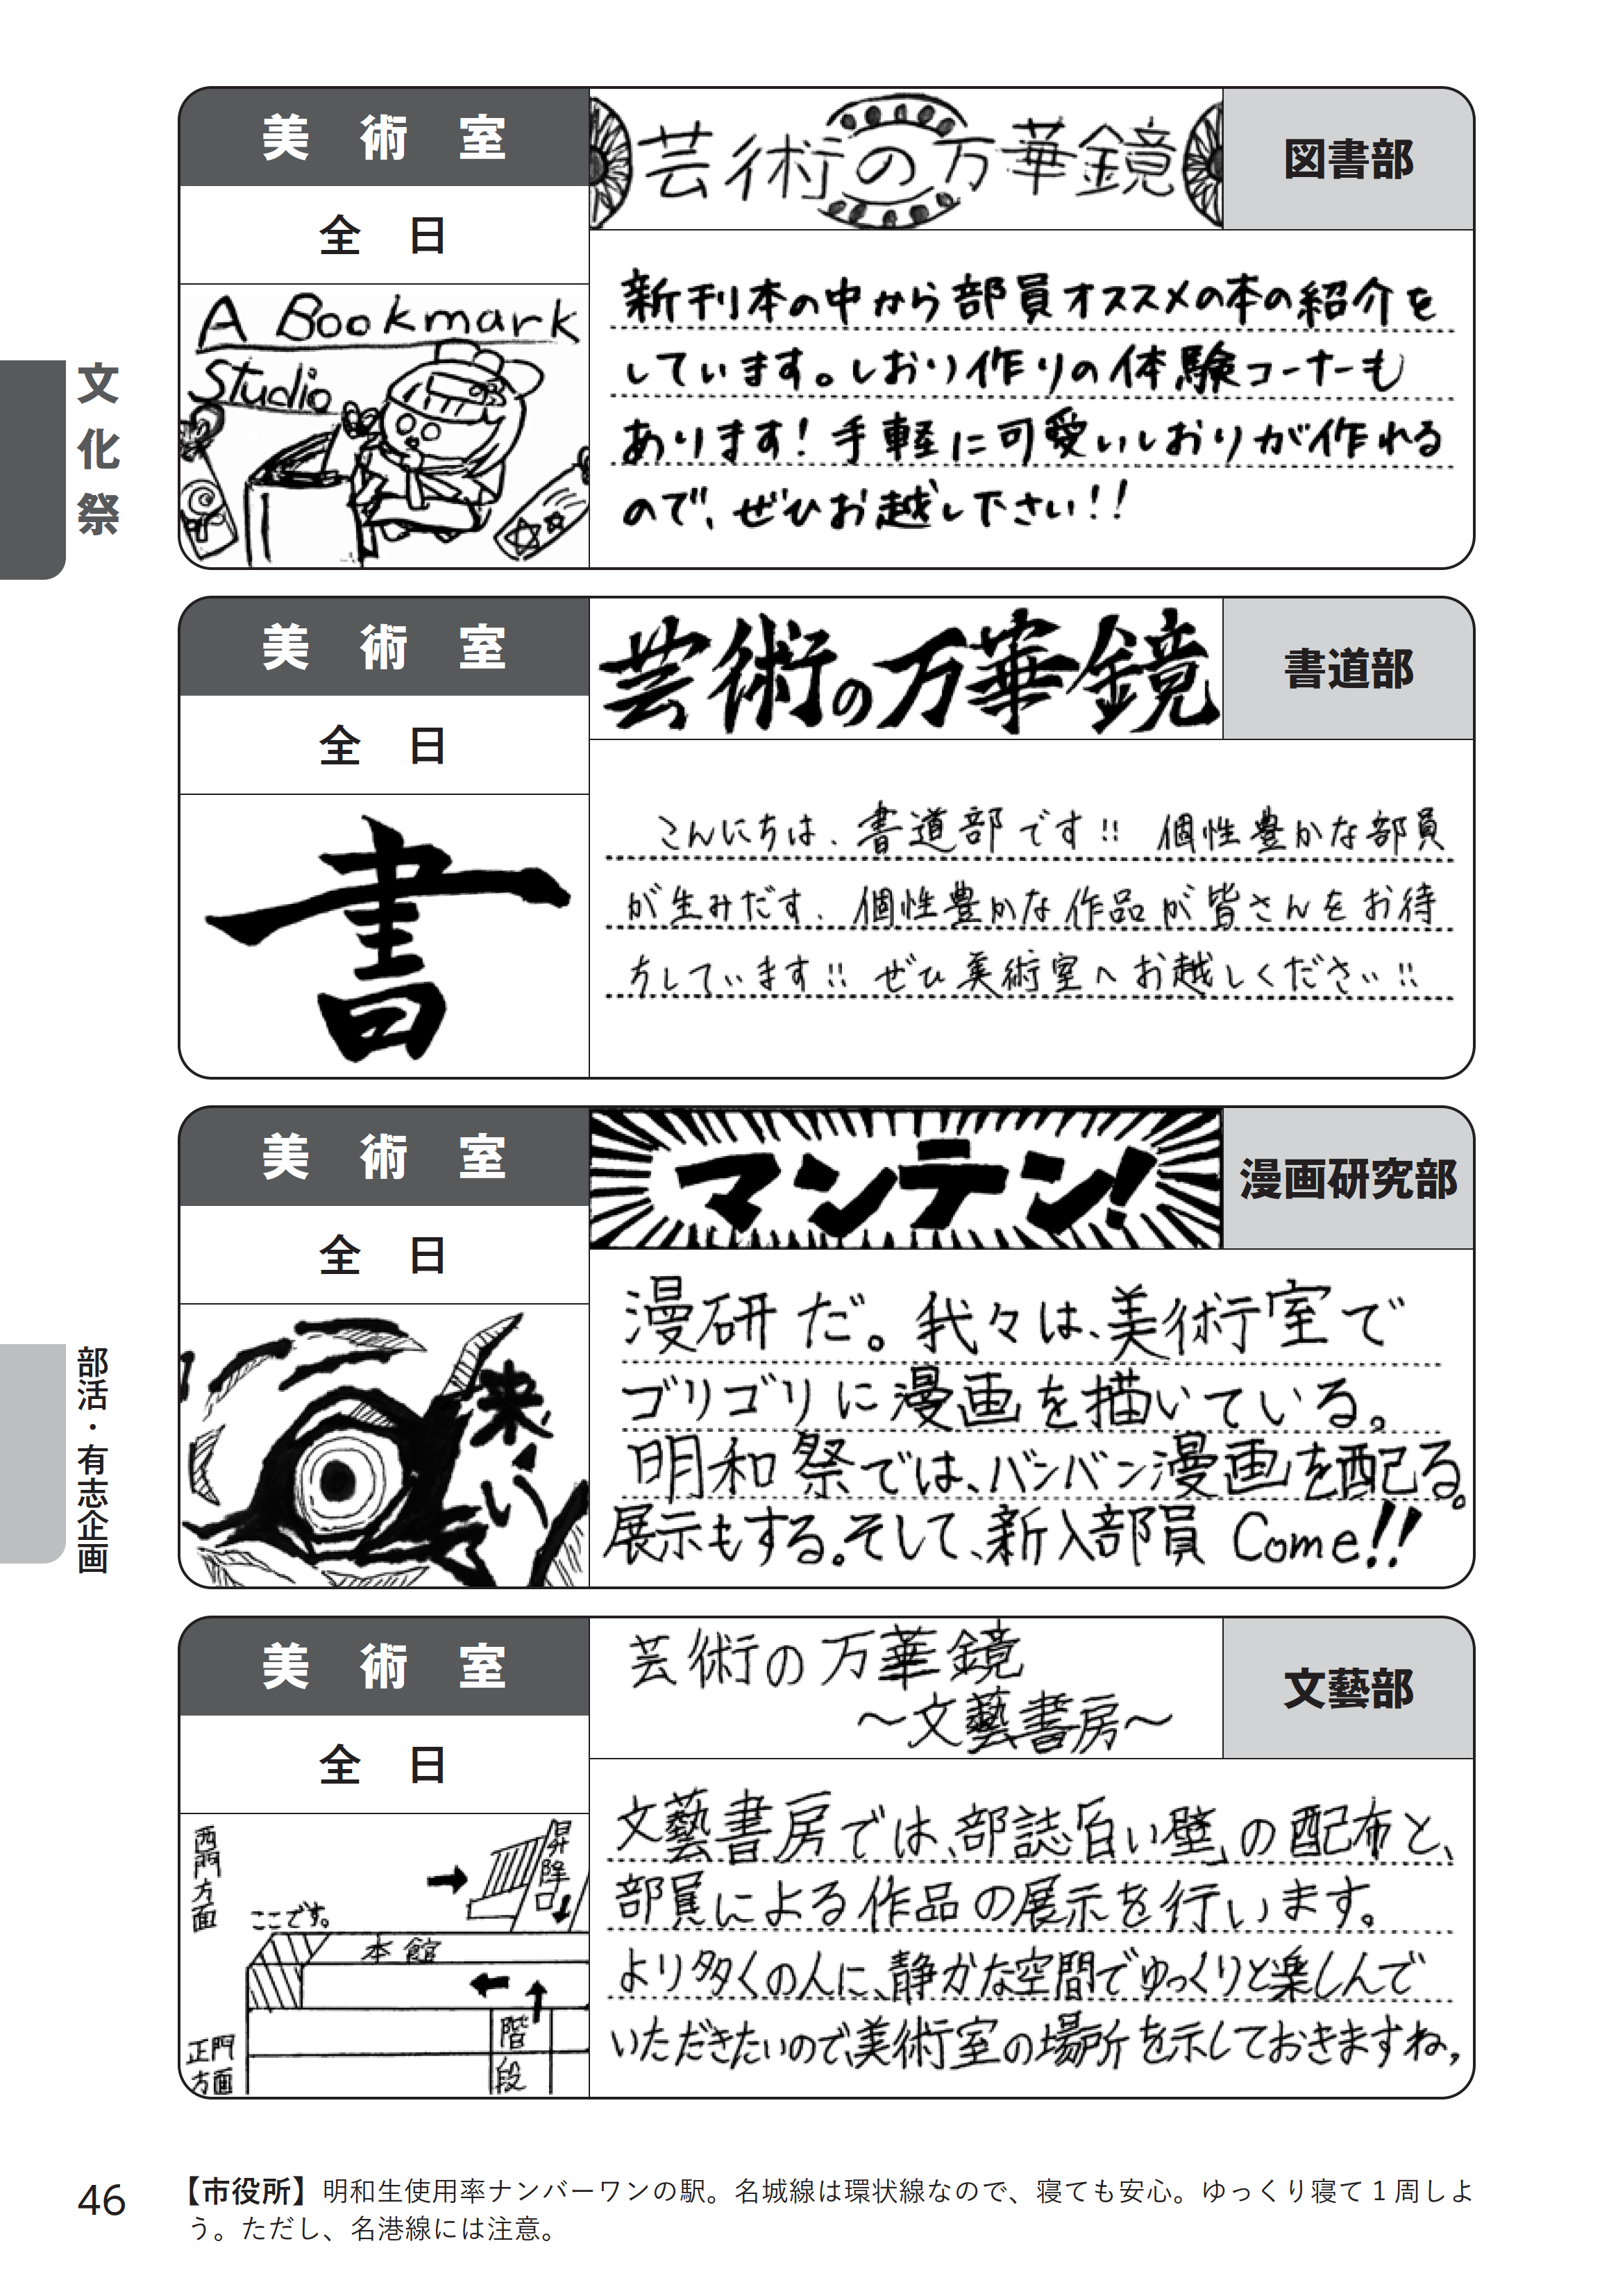 文化祭
部活・有志企画
美術室
全日
A Bookmark
Studio
芸術の万華鏡
図書部
新刊本の中から部員オススメの本の紹介を
しています。しおり作りの体験コーナーも
あります！手軽に可愛いしおりが作れる
ので、ぜひお越し下さい！！
美術室
全日
書
芸術の万華鏡
書道部
こんにちは、書道部です!! 個性豊かな部員
が生みだす、個性豊かな作品が皆さんをお待
ちしています!! ぜひ美術室へお越しください!!
美術室
全日
来い
マンテン!
漫画研究部
漫研だ。我々は、美術室で
ゴリゴリに漫画を描いている。
明和祭では、バンバン漫画を配る。
展示もする。そして、新入部員 Come!!
美術室
全日
西門方面
昇降口
ここです。
本館
階段
正門
方面
芸術の万華鏡
～文藝書房～
文藝部
文藝書房では、部誌「白い壁」の配布と、
部員による作品の展示を行います。
より多くの人に、静かな空間でゆっくりと楽しんで
いただきたいので、美術室の場所を示しておきますね,
46
【市役所】明和生使用率ナンバーワンの駅。名城線は環状線なので、寝ても安心。ゆっくり寝て１周しよ
う。ただし、名港線には注意。